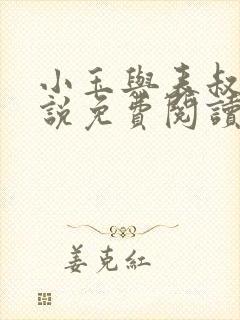 小玉與表叔
說免費閱讀
姜克紅